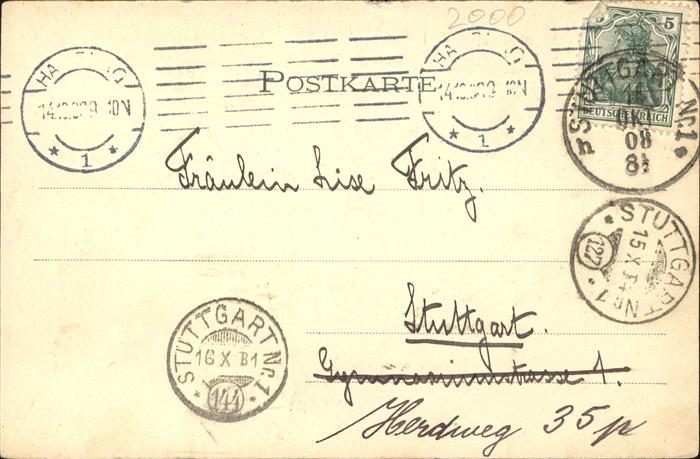 2000
5 5
POSTKARTE
DEUTSCHES REICH
14.10.08 9-10N
* 1 *
14.10.08 9-10N
* 1 *
STUTTGART No. 1
OKT
08
8½
Fräulein Lise Fritz.
STUTTGART No. 1
15 X
127
Stuttgart.
STUTTGART No. 1
16 X B1
141
Gymnasiumstrasse 1.
Herdweg 35 p